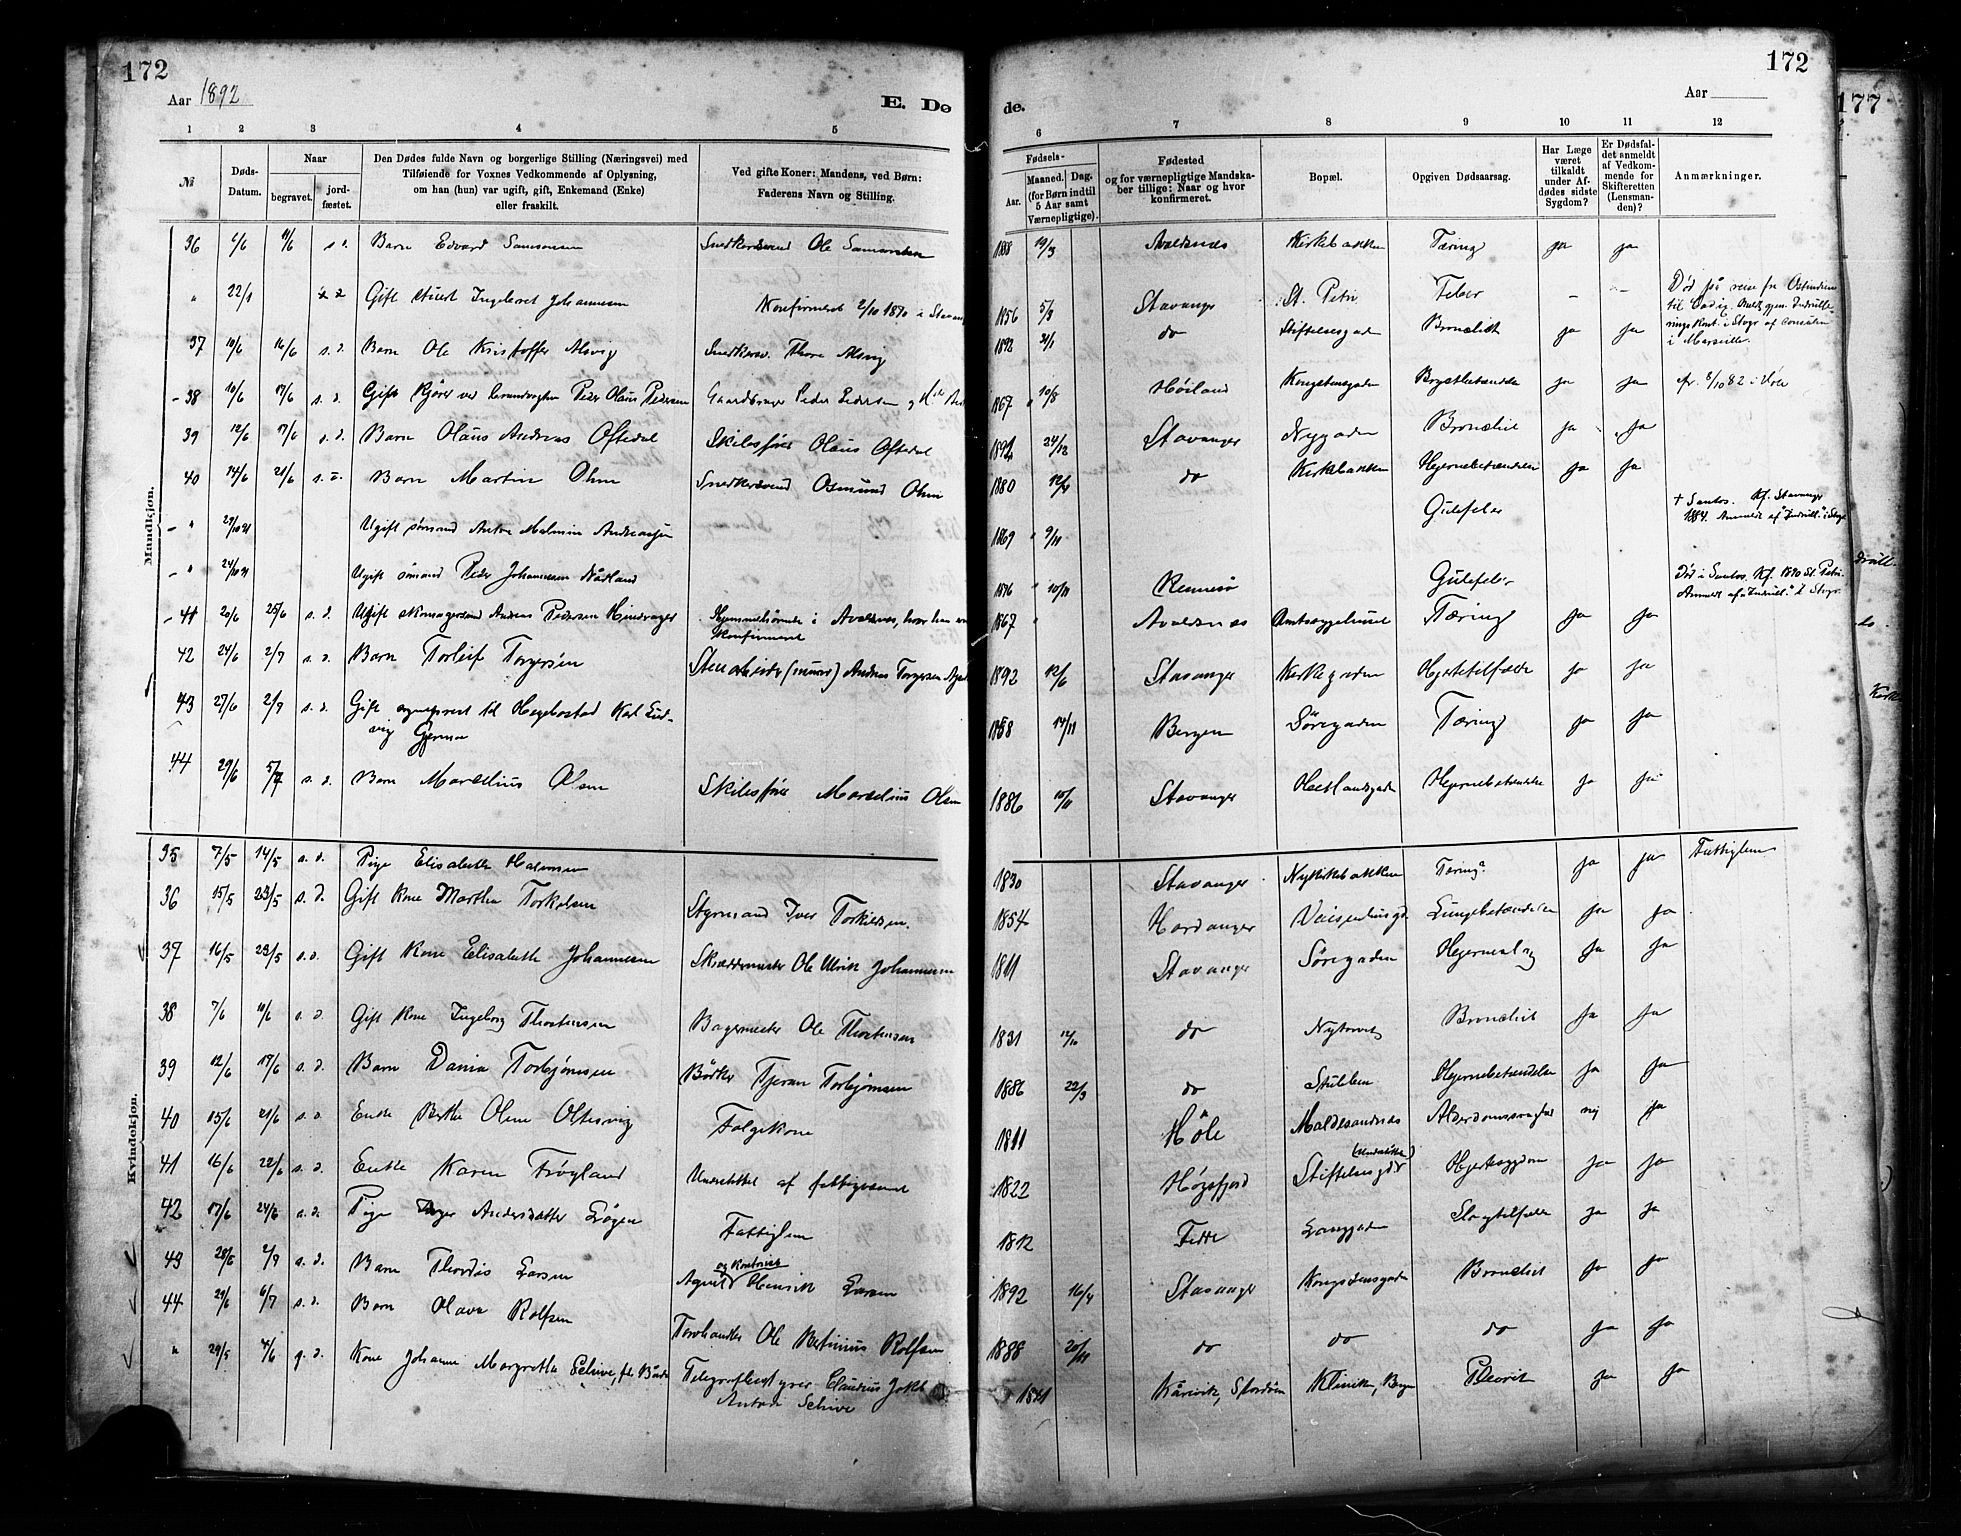 172
172
177
Aar 1892
E. Dø
de.
Aar
1 2 3 4 5
6 7 8 9 10 11 12
№
Døds-
Datum.
Naar
begravet.
jord-
fæstet.
Den Dødes fulde Navn og borgerlige Stilling (Næringsvei) med
Tilføiende for Voxnes Vedkommende af Oplysning,
om han (hun) var ugift, gift, Enkemand (Enke)
eller fraskilt.
Ved gifte Koner: Mandens, ved Børn:
Faderens Navn og Stilling.
Fødsels-
Aar.
Maaned. Dag.
(for Børn indtil
5 Aar samt
Værnepligtige).
Fødested
og for værnepligtige Mandska-
ber tillige: Naar og hvor
konfirmeret.
Bopæl.
Opgiven Dødsaarsag.
Har Læge
været
tilkaldt
under Af-
dødes sidste
Sygdom?
Er Dødsfal-
det anmeldt
af Vedkom-
mende for
Skifteretten
(Lensman-
den)?
Anmærkninger.
Mandkjøn.
36 6/6 11/6 s. d. Barn Edvard Samsonsen Snedkersvend Ole Samsonsen 1888 19/3 Avaldsnes Kirkebakken Tæring ja ja
" 22/1 Gift Ingebret Johannesen Konfirmeret 2/10 1870 i Stavang 1856 5/3 Stavanger St. Petri Feber - - Død på reise fra Ostindien
til Cadiz. i Stvgr af consulen
i Marseille.
37 10/6 16/6 s. d. Barn Ole Kristoffer Alsvig Snedkersv. Thore Alsvig 1892 21/1 do Stiftelsesgaden Bronchit ja ja
38 10/6 17/6 s. d. Gift Peder Olaus Pedersen Gaardbruger Peder Pedersen og 1867 10/8 Høiland Kongstensgaden Brystbetændelse ja ja 8/10 82 i
39 12/6 17/6 s. d. Barn Olaus Andreas Oftedal Skibsfører Olaus Oftedal 1891 24/12 Stavanger Nygaden Bronchit ja ja
40 14/6 21/6 s. d. Barn Martin Olsen Snedkersvend Osmund Olsen 1880 12/4 do Kirkebakken Hjernebetændelse ja ja
" 29/10 91 Ugift sømand Anton Malmin Andreassen 1869 9/11 Gulefeber † Santos. Kf. Stavanger
1884. Anmeldt af "Indrull." i Stvgr
" 24/10 91 Ugift sømand Peder Johannesen Nådland 1876 10/11 Rennesø Gulefeber Død i Santos. Kf. 1890 St. Petri.
Anmeldt af "Indrull." i Stvgr.
41 20/6 25/6 s. d. Ugift skomagersvend Andreas Pedersen Hindvager Hjemmehørende i Avaldsnes, hvor han
konfirmeret 1867 Avaldsnes Amtssygehuset Tæring ja ja
42 24/6 2/7 s. d. Barn Torleif Torgersen Stenarbeider (murer) Andreas Torgersen 1892 12/6 Stavanger Kirkegaden Hjertetilfælde ja ja
43 27/6 2/7 s. d. Gift Hagbostad Karl Lud-
vig 1858 14/11 Bergen Søregaden Tæring ja ja
44 29/6 5/7 s. d. Barn Marselius Olsen Skibsfører Marselius Olsen 1886 10/11 Stavanger Hetlandsgaden Hjernebetændelse ja ja
Kvindekjøn.
35 7/5 14/5 s. d. Pige Elisabeth Halvorsen 1830 Stavanger Nykirkebakken Tæring ja ja Fattiglem
36 15/5 23/5 s. d. Gift Kone Martha Torkelsen Styrmand Iver Torkelsen. 1854 Hardanger Vaisenhusgd Lungebetændelse ja ja
37 16/5 23/5 s. d. Gift Kone Elisabeth Johannesen Skræddermester Ole Ulrik Johannesen 1811 Stavanger Søregaden Hjerneslag ja ja
38 7/6 11/6 s. d. Gift Kone Ingeborg Thorstensen Bagermester Ole Thorstensen 1831 17/10 do Nytorvet Bronchit ja ja
39 12/6 17/6 s. d. Barn Dania Torbjørnsen Bødker Tjeran Torbjørnsen 1886 22/3 do Stubben Hjernebetændelse ja ja
40 15/6 21/6 s. d. Enke Berthe Olene Oltesvig Følgekone 1811 Høle Maldesandnes Alderdomssvaghed nej ja
41 16/6 22/6 s. d. Enke Karen Frøyland Understøttet af fattigvæsenet 1822 Høgsfjord Stiftelsesgd Hjertesygdom ja ja
42 17/6 24/6 s. d. Pige Andersdatter Løgen Fattiglem 1812 Fedde Langgaden Slagtilfælde ja ja
43 28/6 2/7 s. d. Barn Thordis Larsen Agent og Kontorist Henrik Larsen 1892 16/4 Stavanger Kongstensgaden Bronchit ja ja
44 29/6 6/7 s. d. Barn Olava Rolfsen Torvhandler Ole Bertinius Rolfsen 1888 20/11 do do do ja ja
" 29/5 4/6 g. d. Kone Johanne Margrethe Schive, f. Telegrafbestyrer Claudius Jakob
Anton Schive 1841 Kårvik, Klinik, Bergen Pleurit ja ja